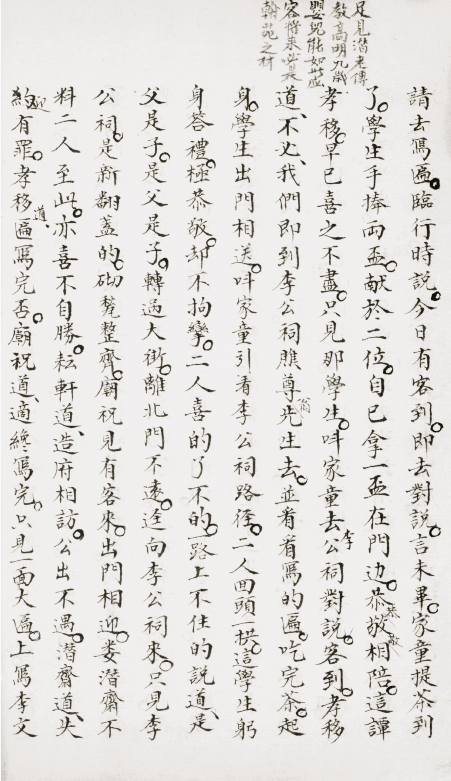 足見潛老傳
教高明九歲
嬰兒能如此盛
客將來必是
翰苑之材
請去寫匾。臨行時說。今日有客到。即去對說。言未畢。家童提茶到
了。學生手捧兩盃。献於二位。自已拿一盃在門边。恭敬相陪。這譚
恭敬
孝移。早已喜之不盡。只見那學生。呌家童去李公祠對說。客到。孝移
道、不必、我們即到李公祠瞧尊翁先生去。並看看寫的匾。吃完茶。起
身。學生出門相送。呌家童引着李公祠路徑。二人回頭一拱。這學生躬
身答禮。極恭敬。却不拘攣。二人喜的了不的。一路上不住的說道、是
父是子。是父是子。轉過大街。離北門不遠。逕向李公祠來。只見李
公祠。是新翻蓋的。砌甃整齊。廟祝見有客來。出門相迎。婁潛齋不
料二人至此。亦喜不自勝。耘軒道、造府相訪。公出不遇。潛齋道、失
迎有罪。孝移道、匾寫完否。廟祝道、適纔寫完。只見一面大匾。上寫李文